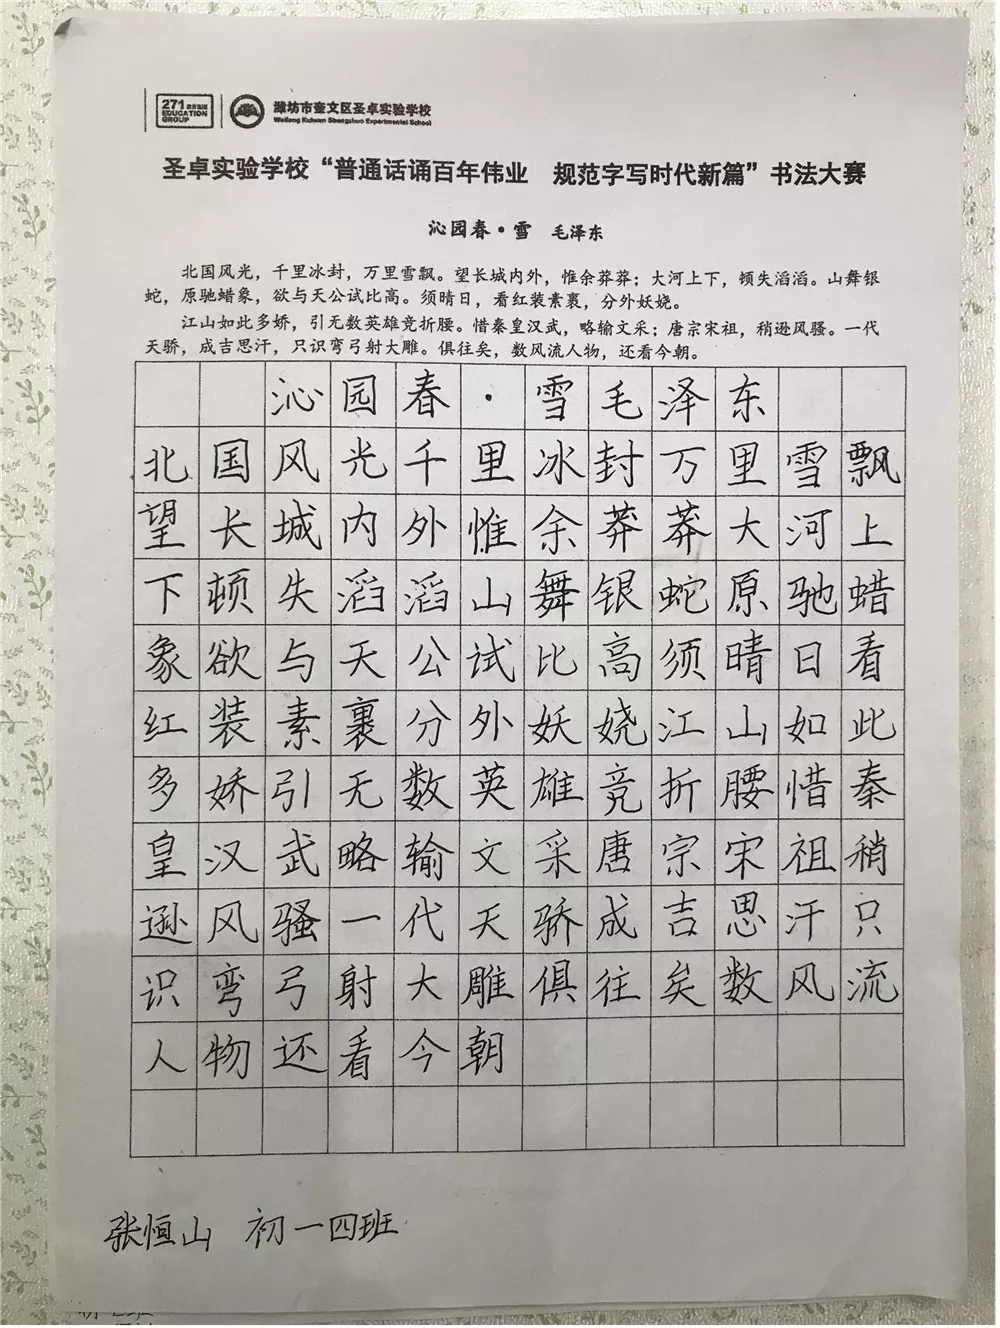 271 教育集团
EDUCATION
GROUP
潍坊市奎文区圣卓实验学校
Weifang Kuiwen Shengzhuo Experimental School
圣卓实验学校“普通话诵百年伟业 规范字写时代新篇”书法大赛
沁园春·雪 毛泽东
北国风光，千里冰封，万里雪飘。望长城内外，惟余莽莽；大河上下，顿失滔滔。山舞银
蛇，原驰蜡象，欲与天公试比高。须晴日，看红装素裹，分外妖娆。
江山如此多娇，引无数英雄竞折腰。惜秦皇汉武，略输文采；唐宗宋祖，稍逊风骚。一代
天骄，成吉思汗，只识弯弓射大雕。俱往矣，数风流人物，还看今朝。
沁园春·雪毛泽东
北国风光千里冰封万里雪飘
望长城内外惟余莽莽大河上
下顿失滔滔山舞银蛇原驰蜡
象欲与天公试比高须晴日看
红装素裹分外妖娆江山如此
多娇引无数英雄竞折腰惜秦
皇汉武略输文采唐宗宋祖稍
逊风骚一代天骄成吉思汗只
识弯弓射大雕俱往矣数风流
人物还看今朝
张恒山 初一四班